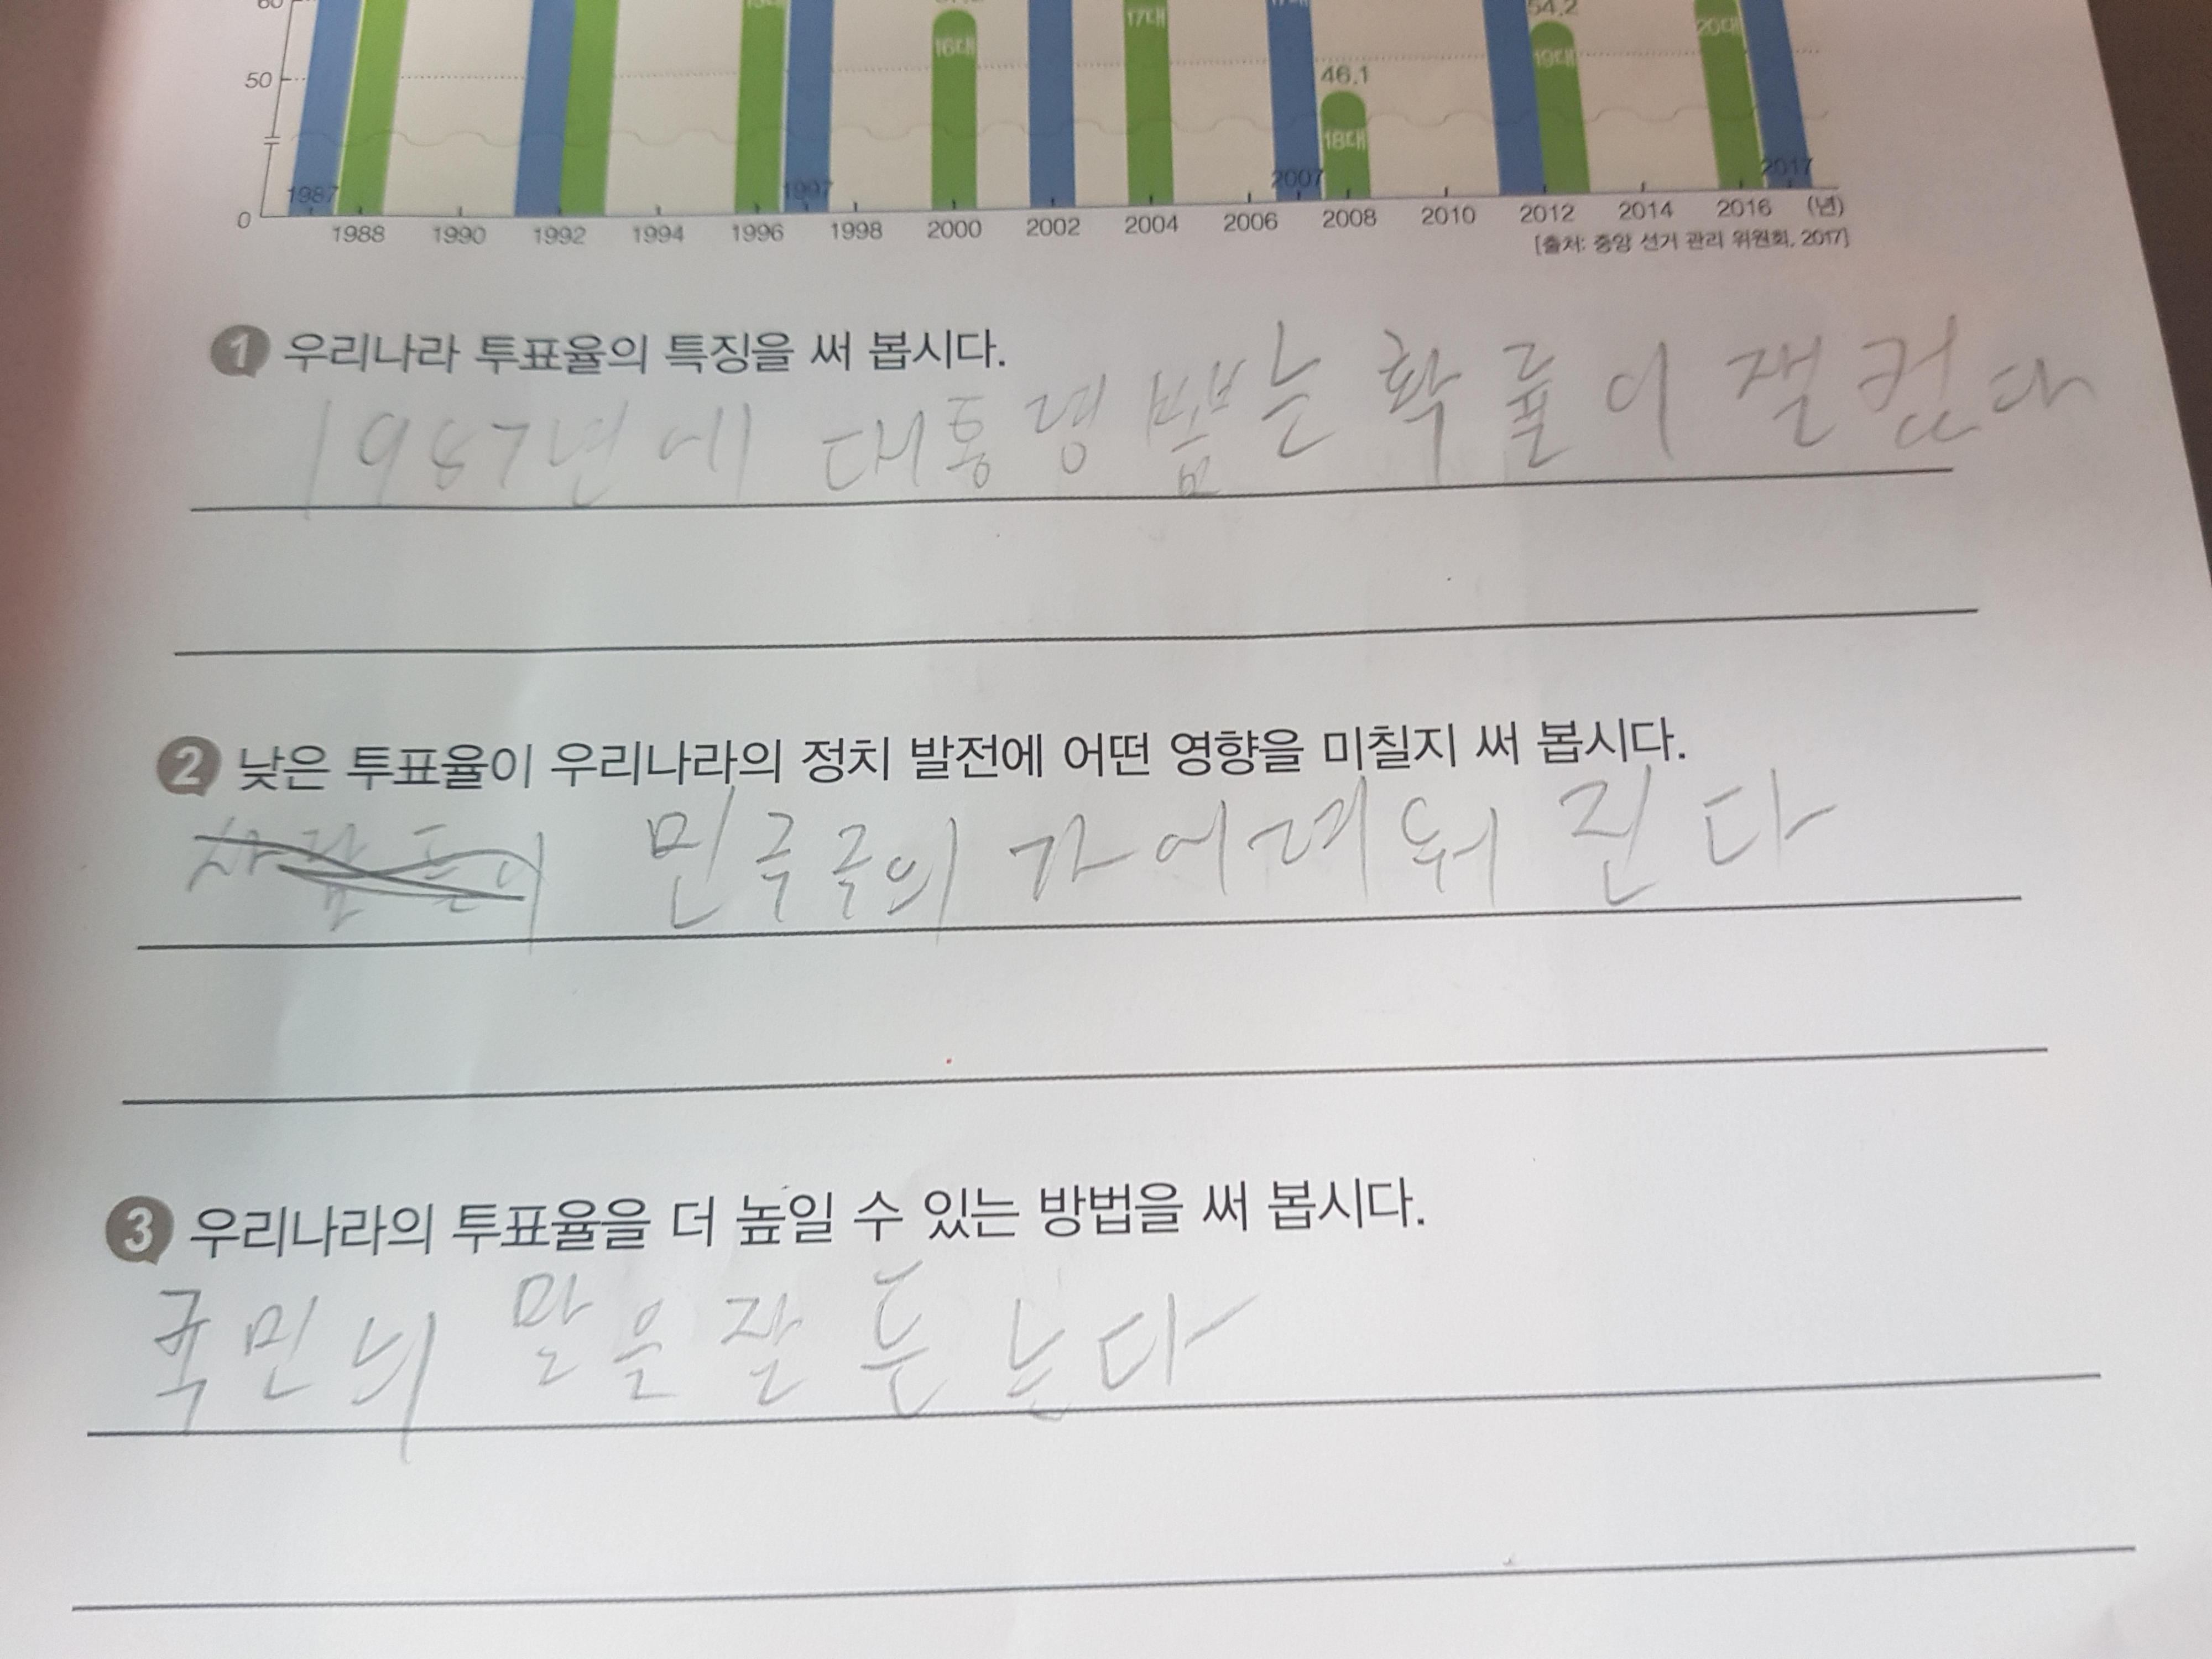 60
54.2
16대
17대
19대
20대
50
46.1
18대
1987
1997
2007
2017
0
1988 1990 1992 1994 1996 1998 2000 2002 2004 2006 2008 2010 2012 2014 2016 (년)
[출처: 중앙 선거 관리 위원회, 2017]
1 우리나라 투표율의 특징을 써 봅시다.
1987년에 대통령 뽑는 확률이 잴 컸다
2 낮은 투표율이 우리나라의 정치 발전에 어떤 영향을 미칠지 써 봅시다.
민주주의가 어려워 진다
3 우리나라의 투표율을 더 높일 수 있는 방법을 써 봅시다.
국민늬 말은 잘 듣는다